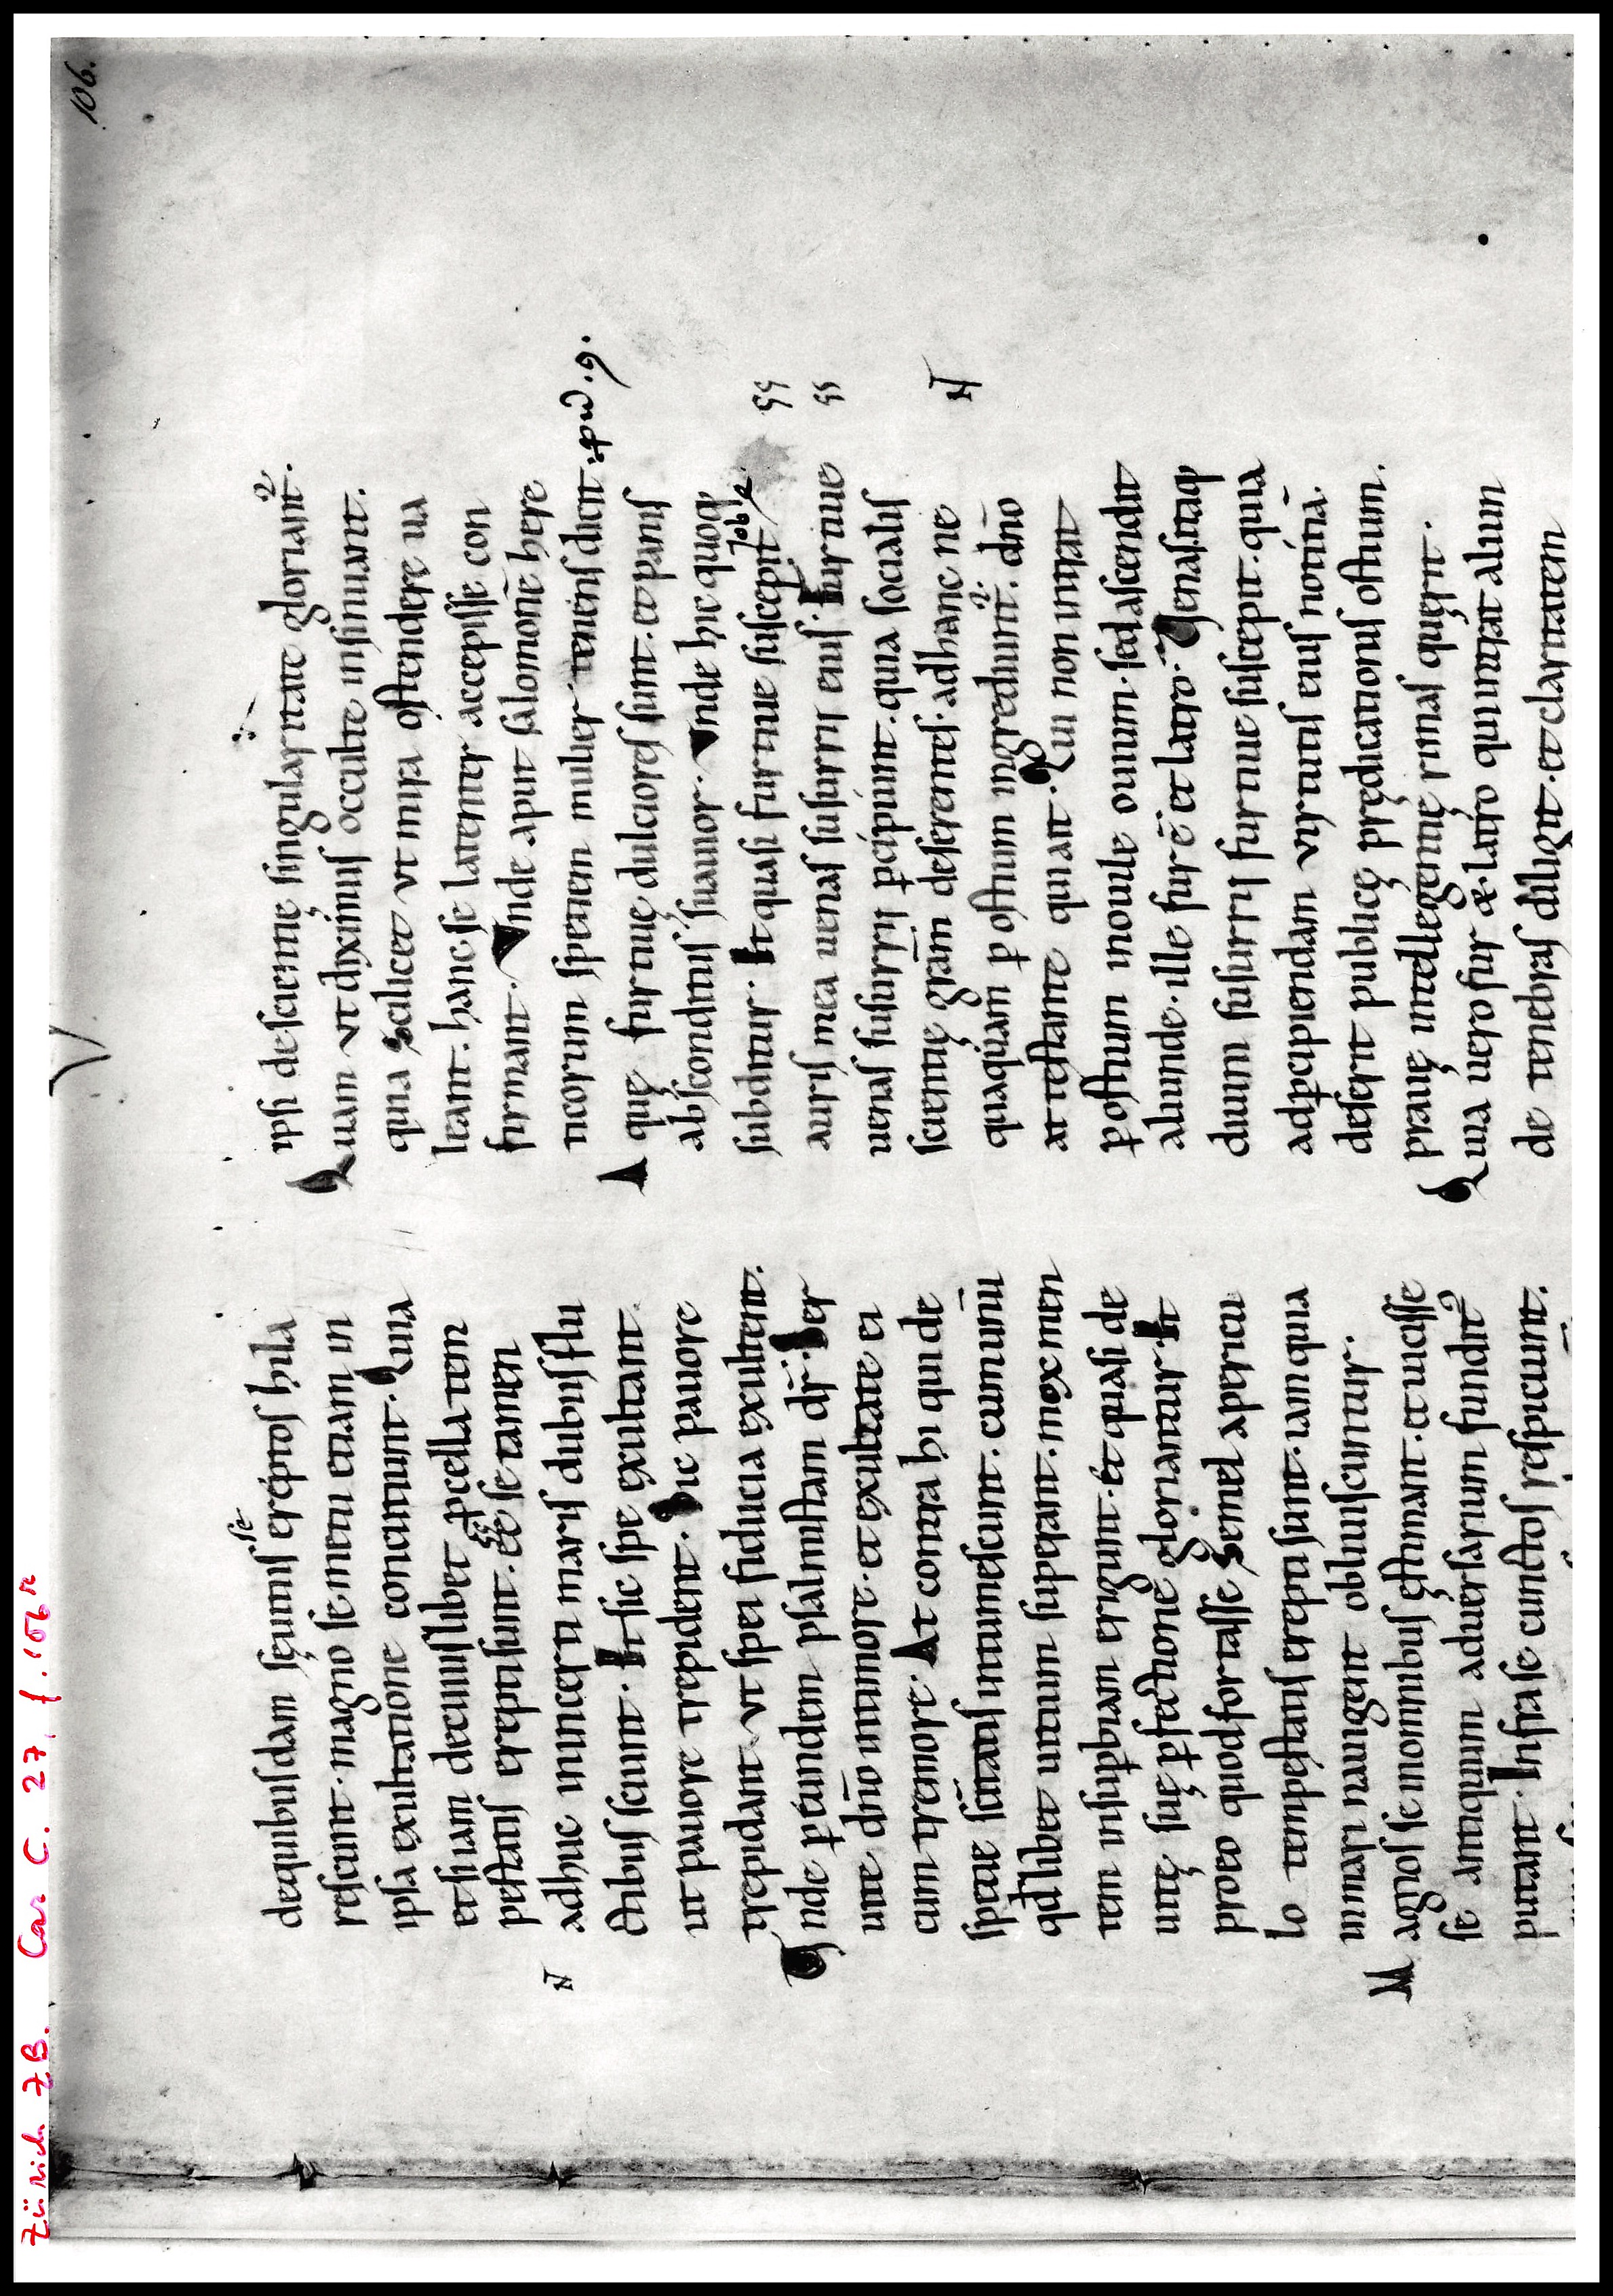 Zürich ZB. Car C. 27, f. 106r
106.
dequibusdam sęuiniis ereptos hila
rescunt. magno se metu etiam in
ipsa exultatione concutiunt. Quia
etsi iam decuiuslibet ꝓcella tem
pestatis erepti sunt. se tamen
adhuc inincerti maris dubiis flu
ctibus sciunt. Et sic spe exultant
ut pauore trepident. Sic pauore
trepidant vt spei fiducia exultent.
Vnde ꝑ eundem psalmistam dr̄. Ser
uite dn̄o intimore. et exultate ei
cum tremore. At contra hi qui de
specie sc̄itatis intumescunt. cum unū
qd̄ libet uitium superant. mox men
tem insuꝑbiam erigunt. et quasi de
uitę suę ꝑfectione gloriantur. Et
pro eo quod fortasse semel a pericu
lo tempestatis erepti sunt. iam quia
in mari nauigent obliuiscuntur.
Magnos se inomnibus ęstimant. et uicisse
se antiquum aduersarium funditꝰ
putant. Infra se cunctos respiciunt.
ipsi de scientię singularitate gloriant᷑.
Quam vt diximus occulte insinuant.
quia scilicet vt mira ostendere ua
leant. hanc se latenter accepisse con
firmant. Vnde aput salomonē here
ticorum speciem mulier tenens dicit. ꝓu̅. 9.
Aquę furtiuę dulciores sunt. et panis
absconditus suauior. Vnde hic quoq;
subditur. Et quasi furtiue suscepit Job
auris mea uenas susurrii eius. Furtiue
uenas susurrii ꝑcipiunt. quia socialis
scientię gr̄am deserentes. ad hanc ne
quaquam ꝑ ostium ingrediunt᷑. dn̄o
attestante qui ait. Qui non intrat
ꝑ ostium inouile ouium. sed ascendit
aliunde. ille fur ē et latro. Venas itaq;
diuini susurrii furtiue suscepit. qui a
adꝑcipiendam virtutis eius notitiā.
deserit publicę prędicationis ostium.
prauę intellegentię rimas quęrit.
Quia uero fur & latro qui intrat aliun
de tenebras diligit. et claritatem